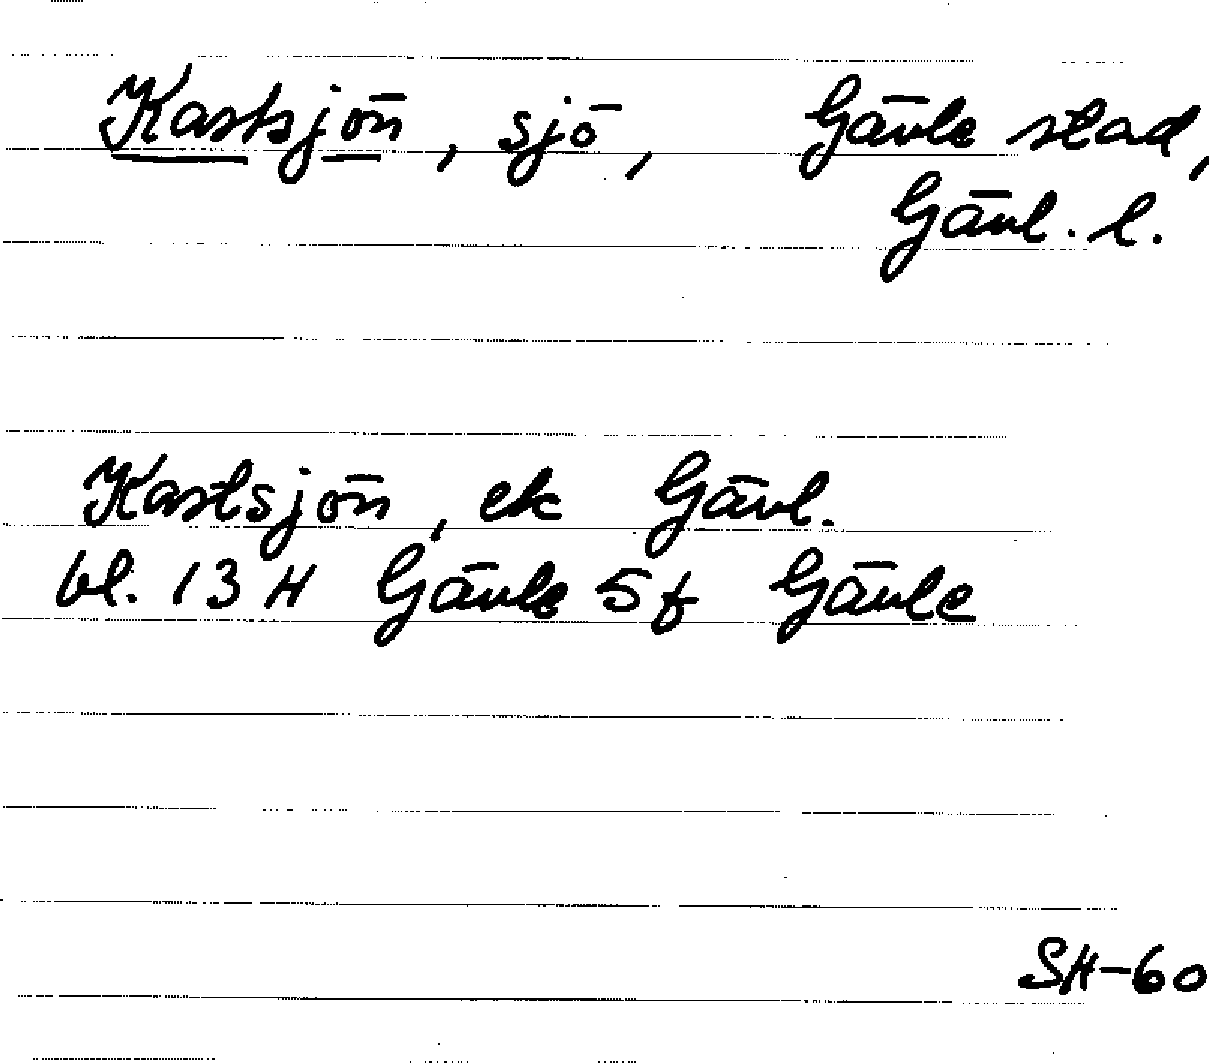 Kastsjön, sjö, Gävle stad,
Gävl. l.
Kastsjön, ek Gävl.
bl. 13 H Gävle 5 f Gävle
SH-60